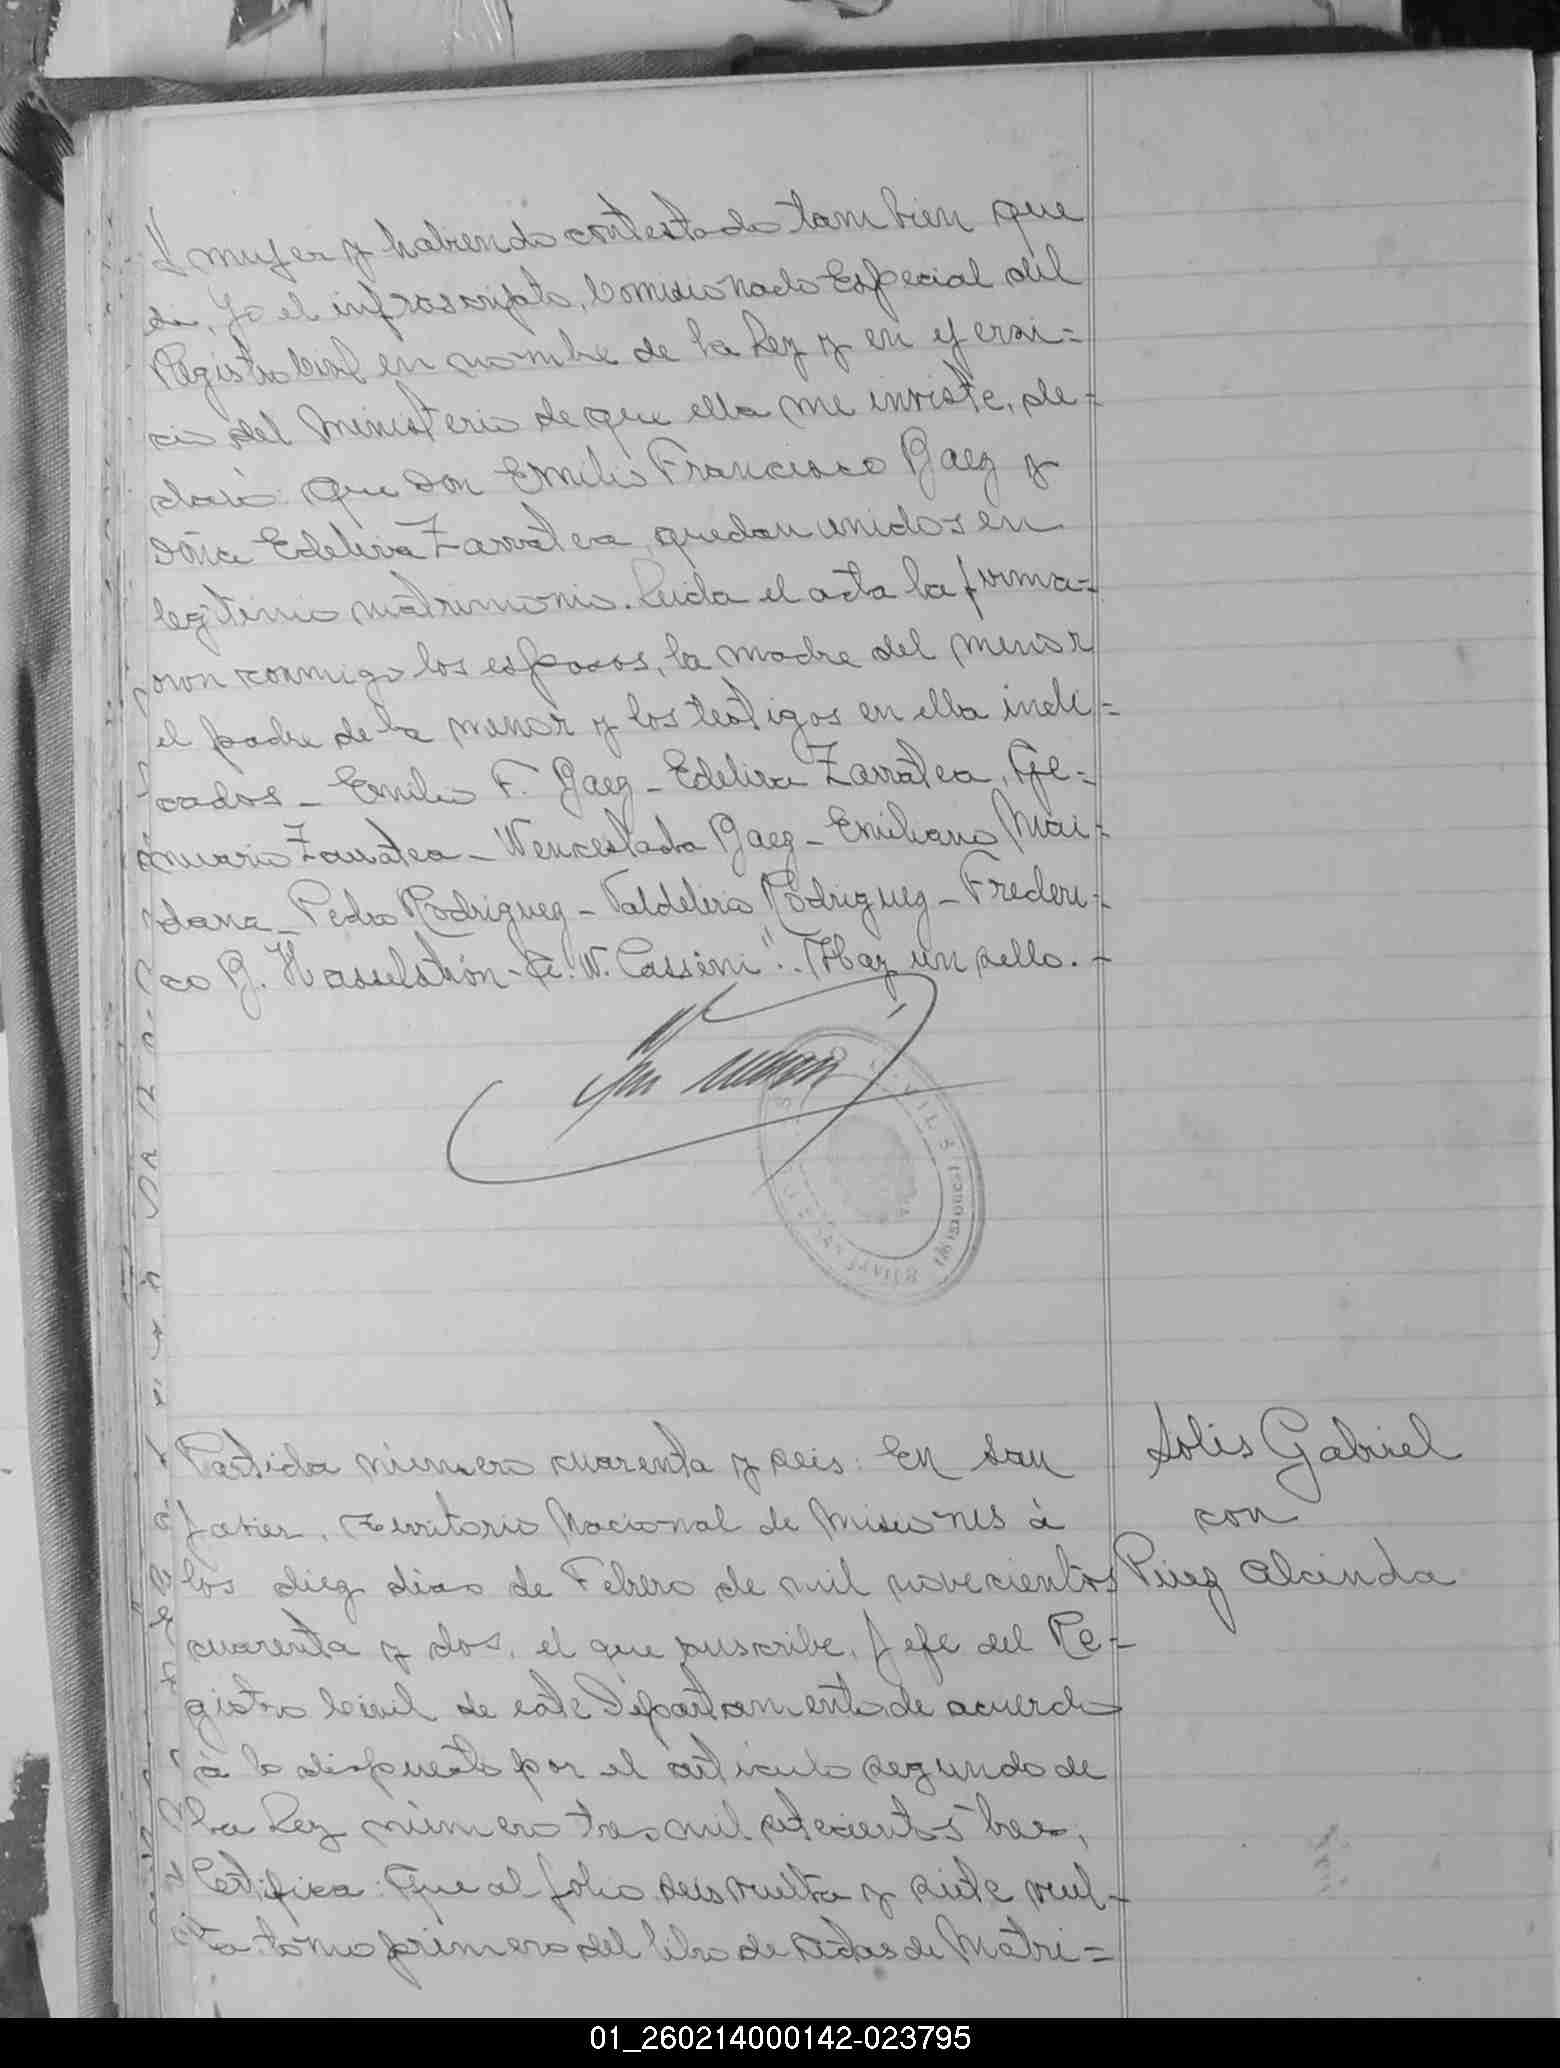 mujer y habiendo contestado tambien que
Yo el infrascripto, Comisionado Especial del
Registro Civil en nombre de la Ley y en ejerci=
cio del Ministerio de que ella me inviste, de=
claró: Que Don Emilio Francisco Baez y
Doña Edelira Zarratea, quedan unidos en
legítimo matrimonio. Leida el acta la firma=
ron conmigo los esposos, la madre del menor
el padre de la menor y los testigos en ella indi=
cados - Emilio F. Baez - Edelira Zarratea, Ge=
nuario Zarratea - Wenceslada Baez - Emiliano Mai=
dana - Pedro Rodriguez - Valdelirio Rodriguez - Frederi=
co G. Hasselstrón - A. W. Cassini". (Hay un sello. -
Partida número cuarenta y seis: En San
Javier, Territorio Nacional de Misiones á
los diez dias de Febrero de mil novecientos
cuarenta y dos, el que suscribe, Jefe del Re=
gistro Civil de este Departamento de acuerdo
á lo dispuesto por el articulo segundo de
la Ley número tres mil setecientos tres,
Certifica: Que al folio seis vuelta y siete vuel=
ta tomo primero del libro de Actas de Matri=
Solis Gabriel
con
Piriz Alcinda
01_260214000142-023795